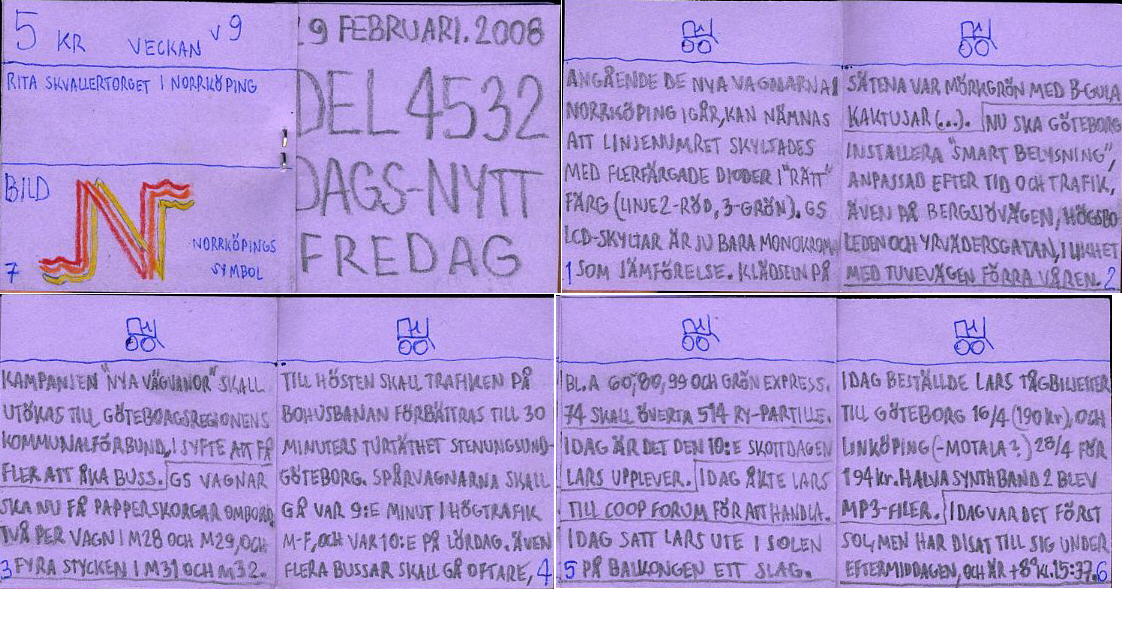 5 KR VECKAN V 9
RITA SKVALLERTORGET I NORRKÖPING
BILD
NORRKÖPINGS
SYMBOL
7
29 FEBRUARI. 2008
DEL 4532
DAGS-NYTT
FREDAG
ANGÅENDE DE NYA VAGNARNA I
NORRKÖPING IGÅR, KAN NÄMNAS
ATT LINJENUMRET SKYLTADES
MED FLERFÄRGADE DIODER I "RÄTT"
FÄRG (LINJE 2-RÖD, 3-GRÖN). GS
LCD-SKYLTAR ÄR JU BARA MONOKROM
1 SOM JÄMFÖRELSE. KLÄDSELN PÅ
SÄTENA VAR MÖRKGRÖN MED B-GULA
KAKTUSAR (...). NU SKA GÖTEBORG
INSTALLERA "SMART BELYSNING",
ANPASSAD EFTER TID OCH TRAFIK,
ÄVEN PÅ BERGSJÖVÄGEN, HÖGSBO-
LEDEN OCH YRVÄDERSGATAN, I LIKHET
MED TUVEVÄGEN FÖRRA VÅREN. 2
KAMPANJEN "NYA VÄGVANOR" SKALL
UTÖKAS TILL GÖTEBORGSREGIONENS
KOMMUNALFÖRBUND, I SYFTE ATT FÅ
FLER ATT ÅKA BUSS. GS VAGNAR
SKA NU FÅ PAPPERSKORGAR OMBORD,
TVÅ PER VAGN I M28 OCH M29, OCH
3 FYRA STYCKEN I M31 OCH M32.
TILL HÖSTEN SKALL TRAFIKEN PÅ
BOHUSBANAN FÖRBÄTTRAS TILL 30
MINUTERS TURTÄTHET STENUNGSUND-
GÖTEBORG. SPÅRVAGNARNA SKALL
GÅ VAR 9:E MINUT I HÖGTRAFIK
M-F, OCH VAR 10:E PÅ LÖRDAG. ÄVEN
FLERA BUSSAR SKALL GÅ OFTARE, 4
BL.A 60, 80, 99 OCH GRÖN EXPRESS.
74 SKALL ÖVERTA 514 RY-PARTILLE.
IDAG ÄR DET DEN 10:E SKOTTDAGEN
LARS UPPLEVER. IDAG ÅKTE LARS
TILL COOP FORUM FÖR ATT HANDLA.
IDAG SATT LARS UTE I SOLEN
5 PÅ BALKONGEN ETT SLAG.
IDAG BESTÄLLDE LARS TÅGBILJETTER
TILL GÖTEBORG 16/4 (190 kr), OCH
LINKÖPING (-MOTALA?) 28/4 FÖR
194 kr. HALVA SYNTHBAND 2 BLEV
MP3-FILER. IDAG VAR DET FÖRST
SOL, MEN HAR DISAT TILL SIG UNDER
EFTERMIDDAGEN, OCH ÄR +8° KL. 15:37. 6